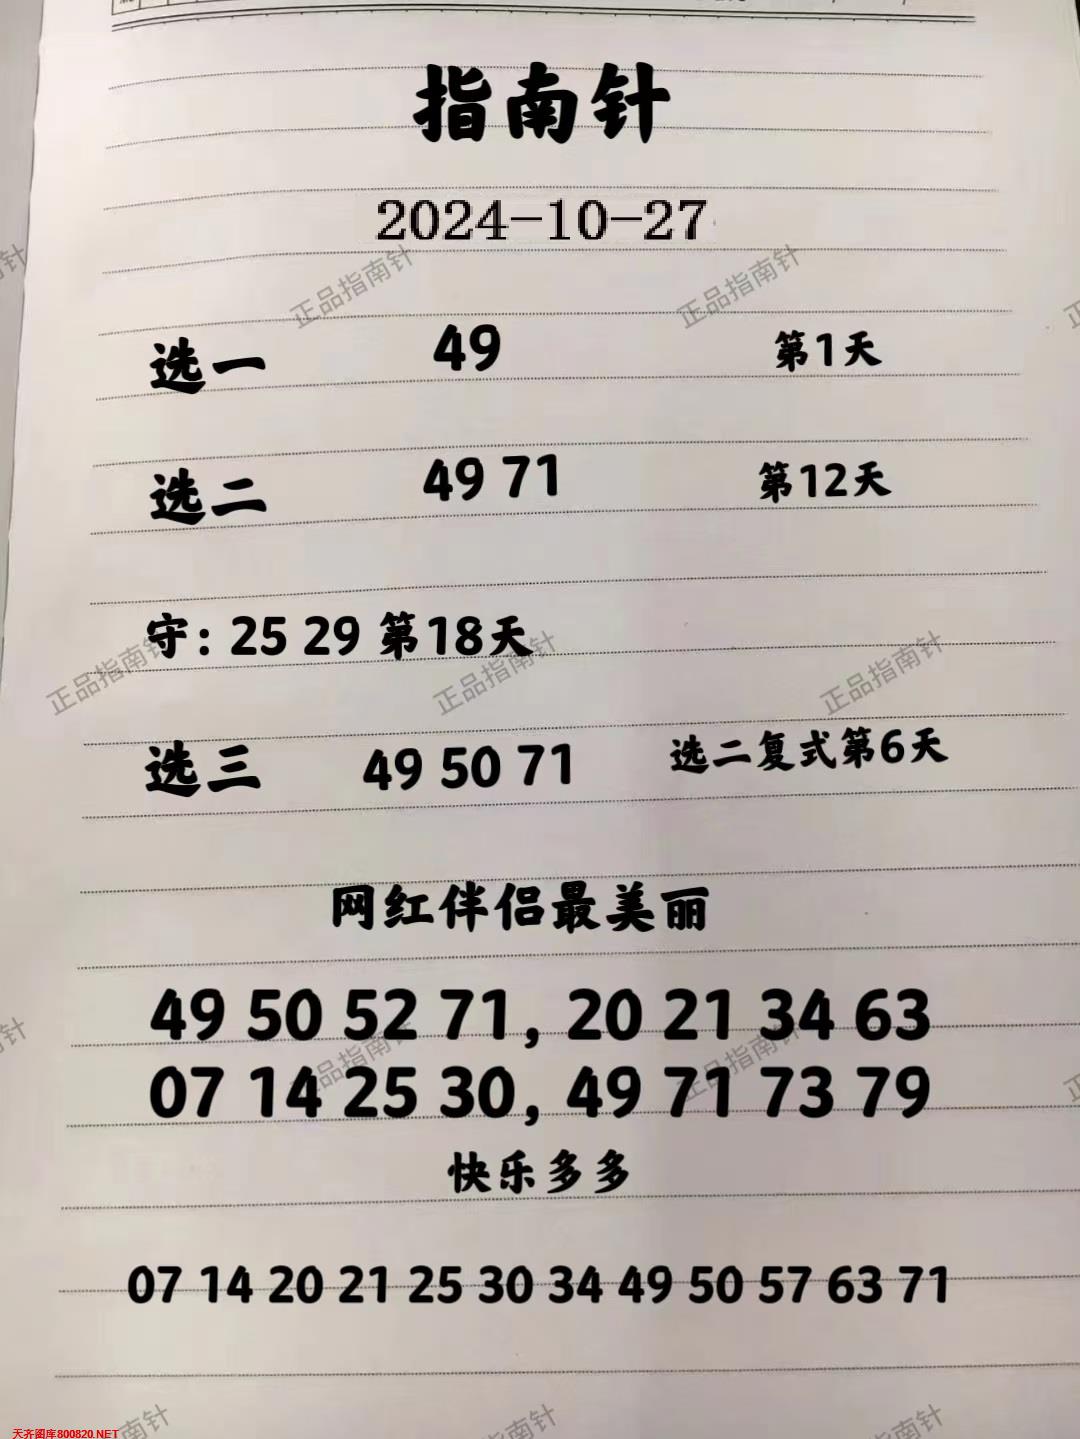 指南针
2024-10-27
正品指南针 正品指南针
选一 49 第1天
选二 49 71 第12天
守: 25 29 第18天
正品指南针 正品指南针 正品指南针
选三 49 50 71 选二复式第6天
网红伴侣最美丽
49 50 52 71, 20 21 34 63
正品指南针 正品指南针
07 14 25 30, 49 71 73 79
快乐多多
07 14 20 21 25 30 34 49 50 57 63 71
天齐图库800820.NET